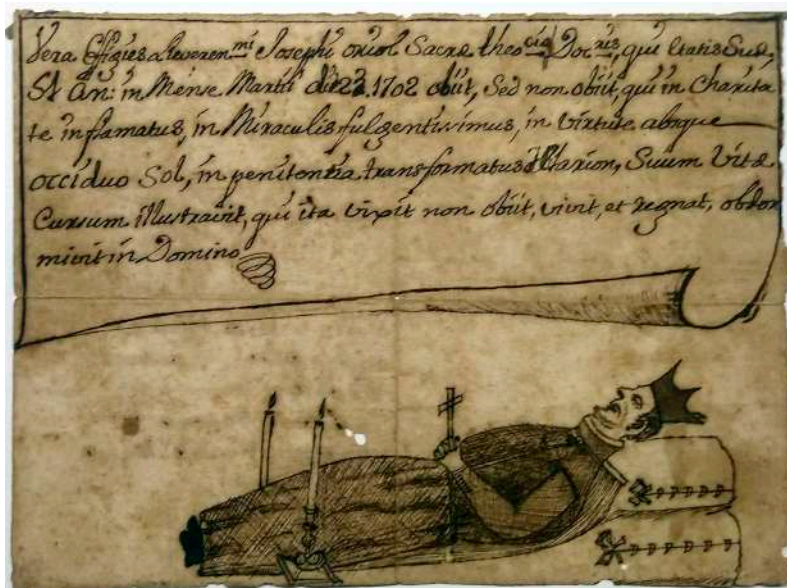 Vera Effigies a Reveren.mi Josephi oriol Sacræ theo.ciæ Doc.ris, qui Etatis Suæ,
51 An: in Mense Martii die 23, 1702 obiit, Sed non obiit, qui in Charita
te inflamatus, in Miraculis fulgentissimus, in Virtute absque
occiduo Sol, in penitentia transformatus Illarion, Suum Vitæ
Cursum illustravit, qui ita vixit non obiit, vivit, et regnat, obdor
mivit in Domino